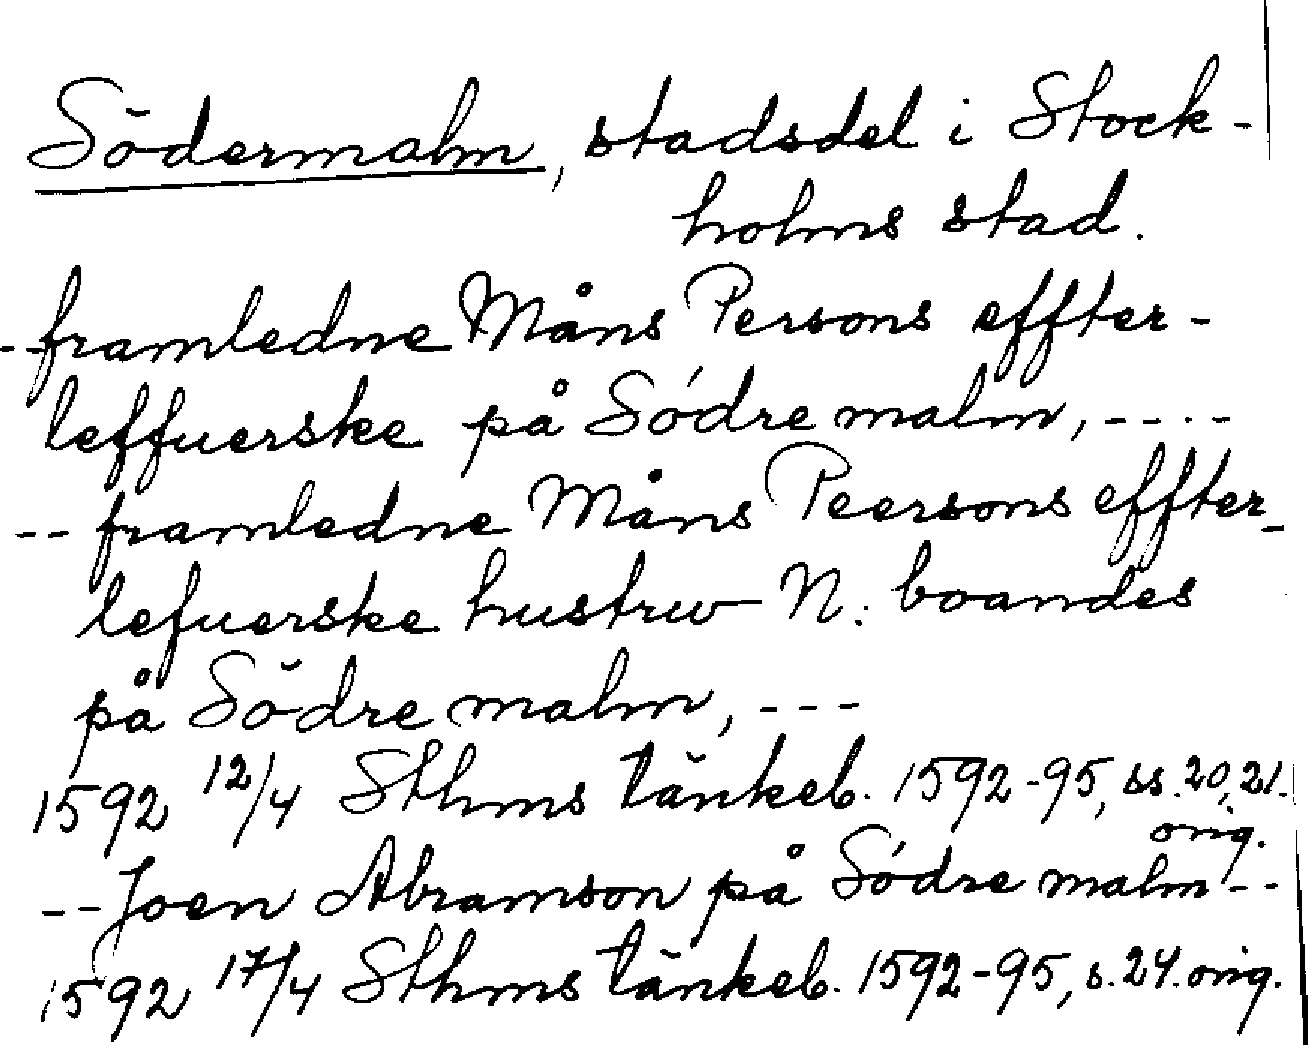 Södermalm, stadsdel i Stock-
holms stad.
- framledne Måns Persons effter-
leffuerske på Södre malm, ----
-- framledne Måns Peersons effter-
lefuerske hustrw N: boandes
på Södre malm, ---
1592 12/4 Sthms tänkeb. 1592-95, ss. 20, 21.
orig.
-- Joen Abramson på Södre malm --
1592 17/4 Sthms tänkeb. 1592-95, s. 24. orig.